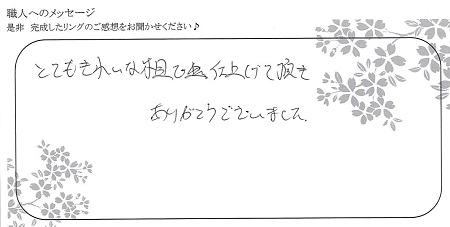 職人へのメッセージ
是非 完成したリングのご感想をお聞かせください♪
とてもきれいな 仕上げて頂き
ありがとうございました。